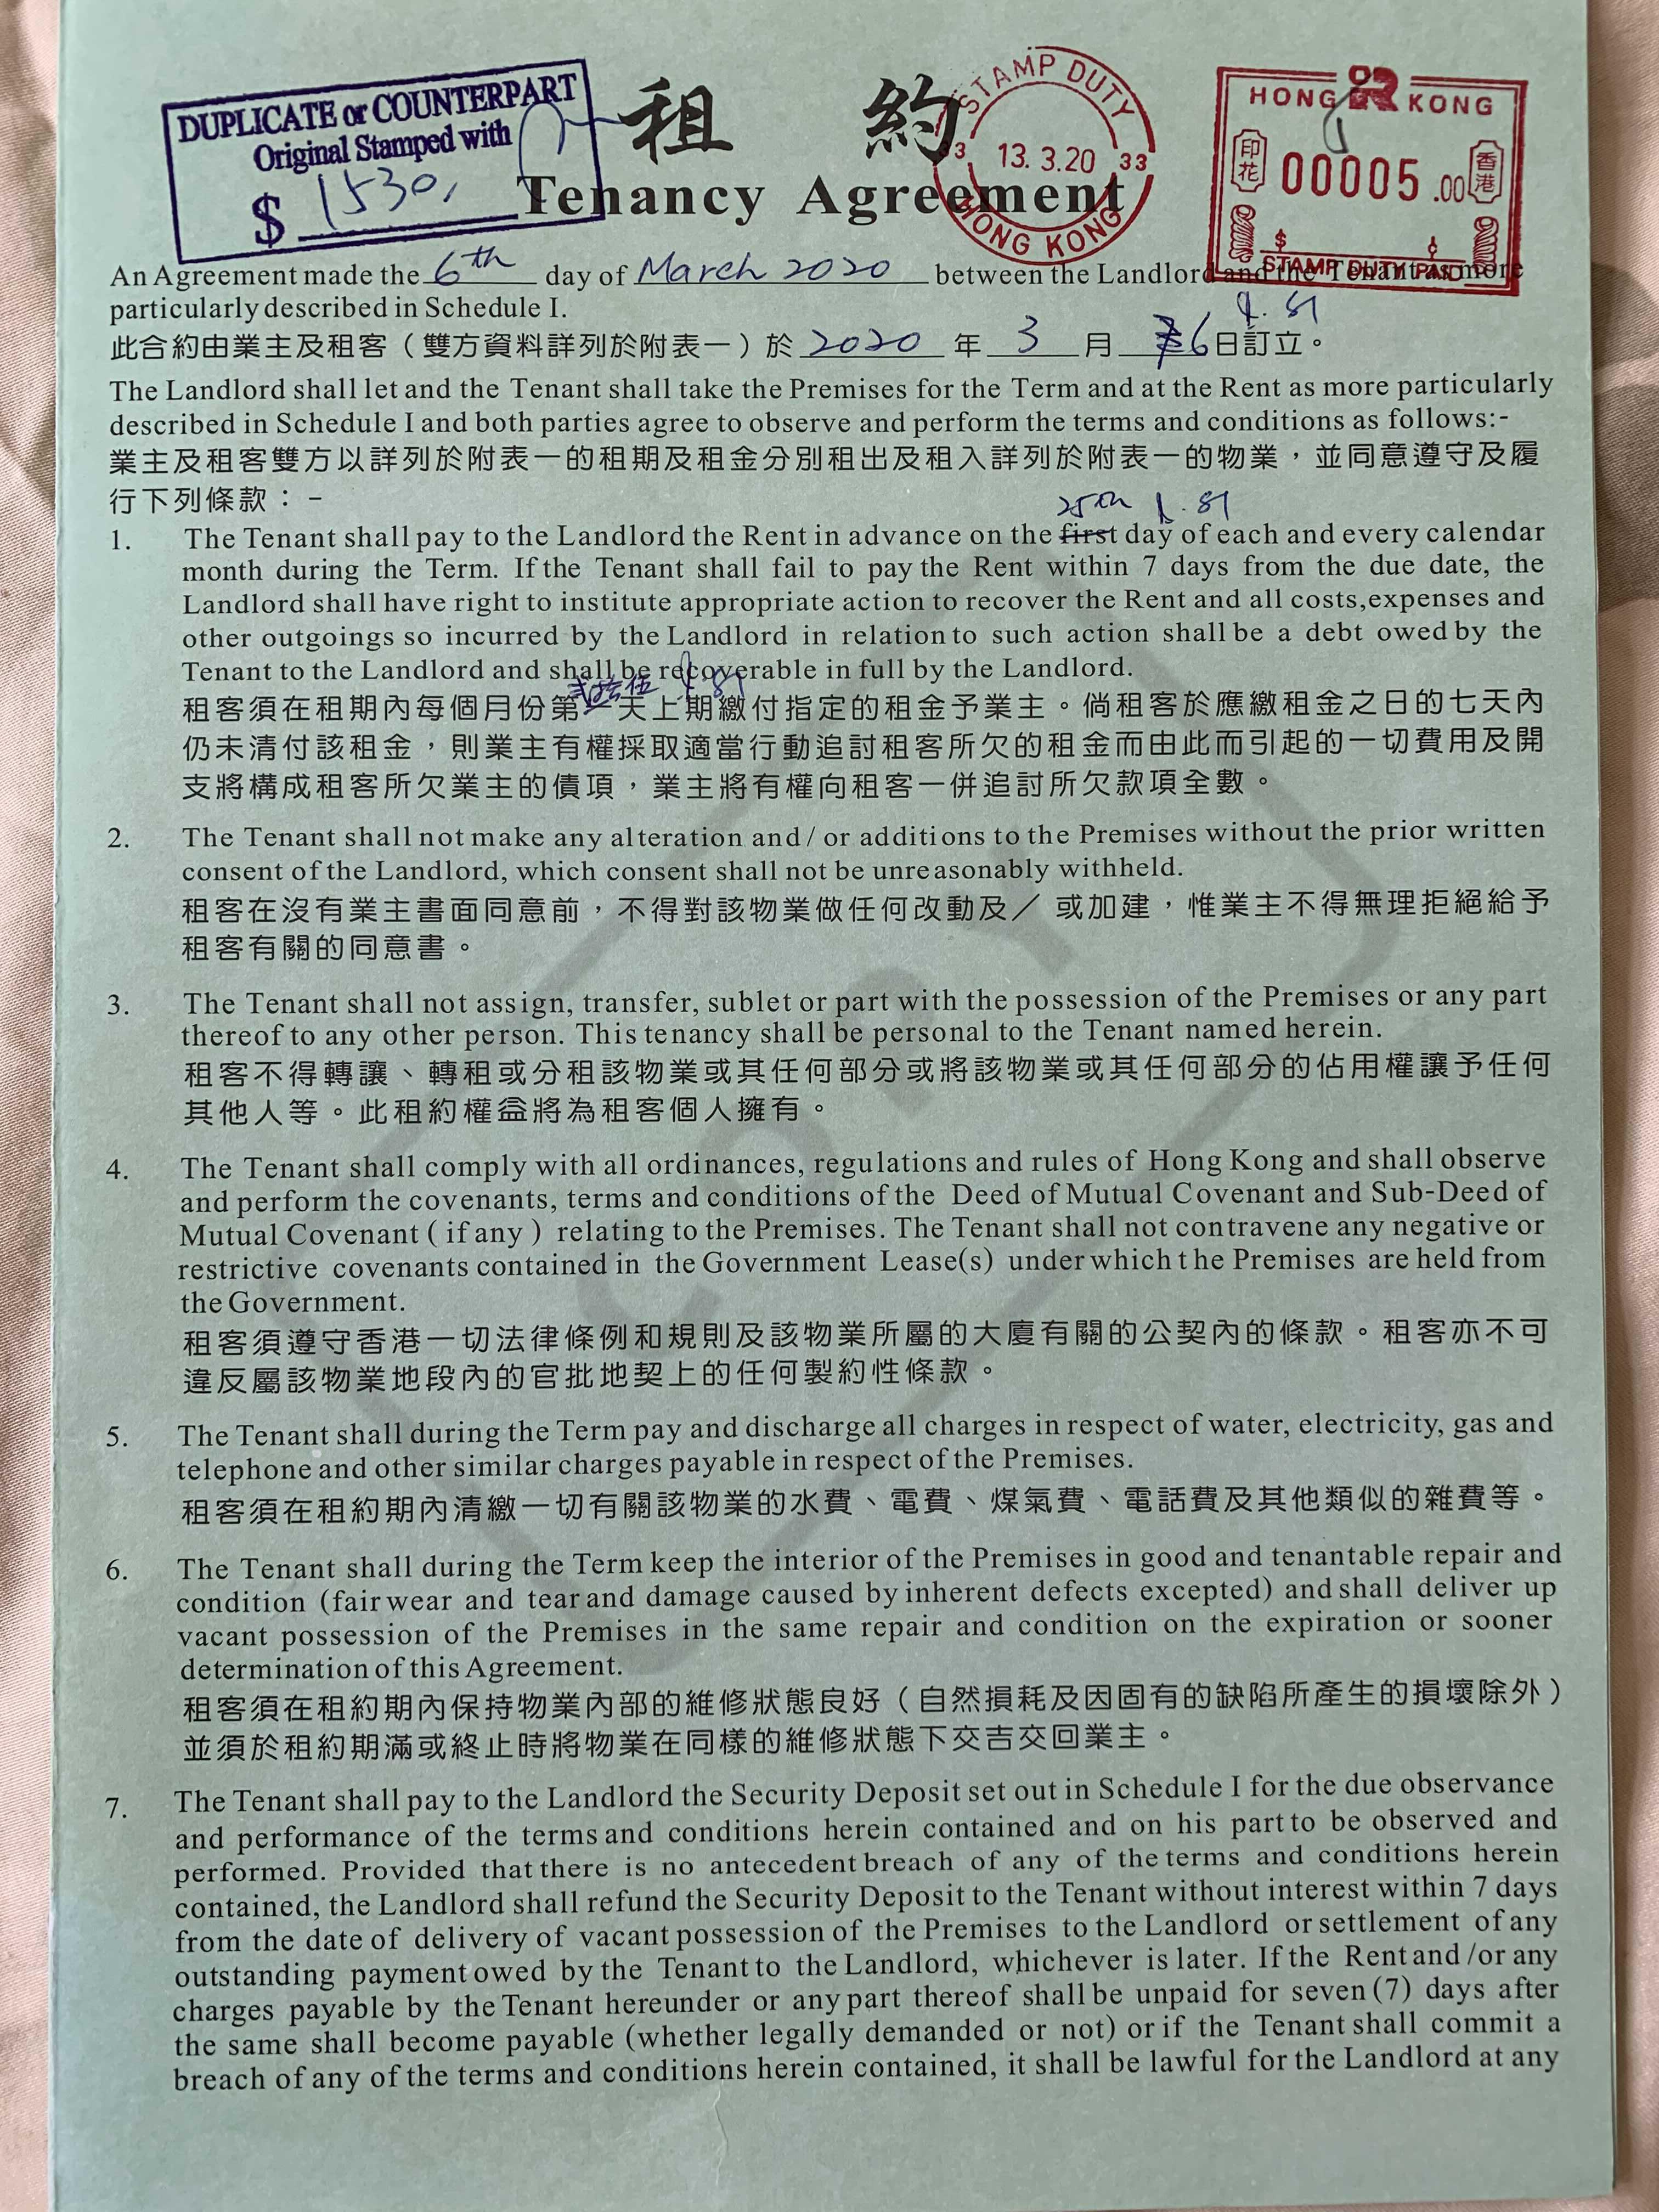 DUPLICATE or COUNTERPART
Original Stamped with
$ 1530
租 約
Tenancy Agreement
STAMP DUTY
33 13.3.20 33
HONG KONG
HONG KONG
印花 00005.00 香港
$ ¢
STAMP DUTY PAID
An Agreement made the 6th day of March 2020 between the Landlord and the Tenant as more
particularly described in Schedule I.
此合約由業主及租客（雙方資料詳列於附表一）於 2020 年 3 月 6 日訂立。
The Landlord shall let and the Tenant shall take the Premises for the Term and at the Rent as more particularly
described in Schedule I and both parties agree to observe and perform the terms and conditions as follows:-
業主及租客雙方以詳列於附表一的租期及租金分別租出及租入詳列於附表一的物業，並同意遵守及履
行下列條款：-
25th
1. The Tenant shall pay to the Landlord the Rent in advance on the first day of each and every calendar
month during the Term. If the Tenant shall fail to pay the Rent within 7 days from the due date, the
Landlord shall have right to institute appropriate action to recover the Rent and all costs,expenses and
other outgoings so incurred by the Landlord in relation to such action shall be a debt owed by the
Tenant to the Landlord and shall be recoverable in full by the Landlord.
租客須在租期內每個月份第一天上期繳付指定的租金予業主。倘租客於應繳租金之日的七天內
仍未清付該租金，則業主有權採取適當行動追討租客所欠的租金而由此而引起的一切費用及開
支將構成租客所欠業主的債項，業主將有權向租客一併追討所欠款項全數。
2. The Tenant shall not make any alteration and / or additions to the Premises without the prior written
consent of the Landlord, which consent shall not be unreasonably withheld.
租客在沒有業主書面同意前，不得對該物業做任何改動及／或加建，惟業主不得無理拒絕給予
租客有關的同意書。
3. The Tenant shall not assign, transfer, sublet or part with the possession of the Premises or any part
thereof to any other person. This tenancy shall be personal to the Tenant named herein.
租客不得轉讓、轉租或分租該物業或其任何部分或將該物業或其任何部分的佔用權讓予任何
其他人等。此租約權益將為租客個人擁有。
4. The Tenant shall comply with all ordinances, regulations and rules of Hong Kong and shall observe
and perform the covenants, terms and conditions of the Deed of Mutual Covenant and Sub-Deed of
Mutual Covenant ( if any ) relating to the Premises. The Tenant shall not contravene any negative or
restrictive covenants contained in the Government Lease(s) under which the Premises are held from
the Government.
租客須遵守香港一切法律條例和規則及該物業所屬的大廈有關的公契內的條款。租客亦不可
違反屬該物業地段內的官批地契上的任何製約性條款。
5. The Tenant shall during the Term pay and discharge all charges in respect of water, electricity, gas and
telephone and other similar charges payable in respect of the Premises.
租客須在租約期內清繳一切有關該物業的水費、電費、煤氣費、電話費及其他類似的雜費等。
6. The Tenant shall during the Term keep the interior of the Premises in good and tenantable repair and
condition (fair wear and tear and damage caused by inherent defects excepted) and shall deliver up
vacant possession of the Premises in the same repair and condition on the expiration or sooner
determination of this Agreement.
租客須在租約期內保持物業內部的維修狀態良好（自然損耗及因固有的缺陷所產生的損壞除外）
並須於租約期滿或終止時將物業在同樣的維修狀態下交吉交回業主。
7. The Tenant shall pay to the Landlord the Security Deposit set out in Schedule I for the due observance
and performance of the terms and conditions herein contained and on his part to be observed and
performed. Provided that there is no antecedent breach of any of the terms and conditions herein
contained, the Landlord shall refund the Security Deposit to the Tenant without interest within 7 days
from the date of delivery of vacant possession of the Premises to the Landlord or settlement of any
outstanding payment owed by the Tenant to the Landlord, whichever is later. If the Rent and /or any
charges payable by the Tenant hereunder or any part thereof shall be unpaid for seven (7) days after
the same shall become payable (whether legally demanded or not) or if the Tenant shall commit a
breach of any of the terms and conditions herein contained, it shall be lawful for the Landlord at any
COPY